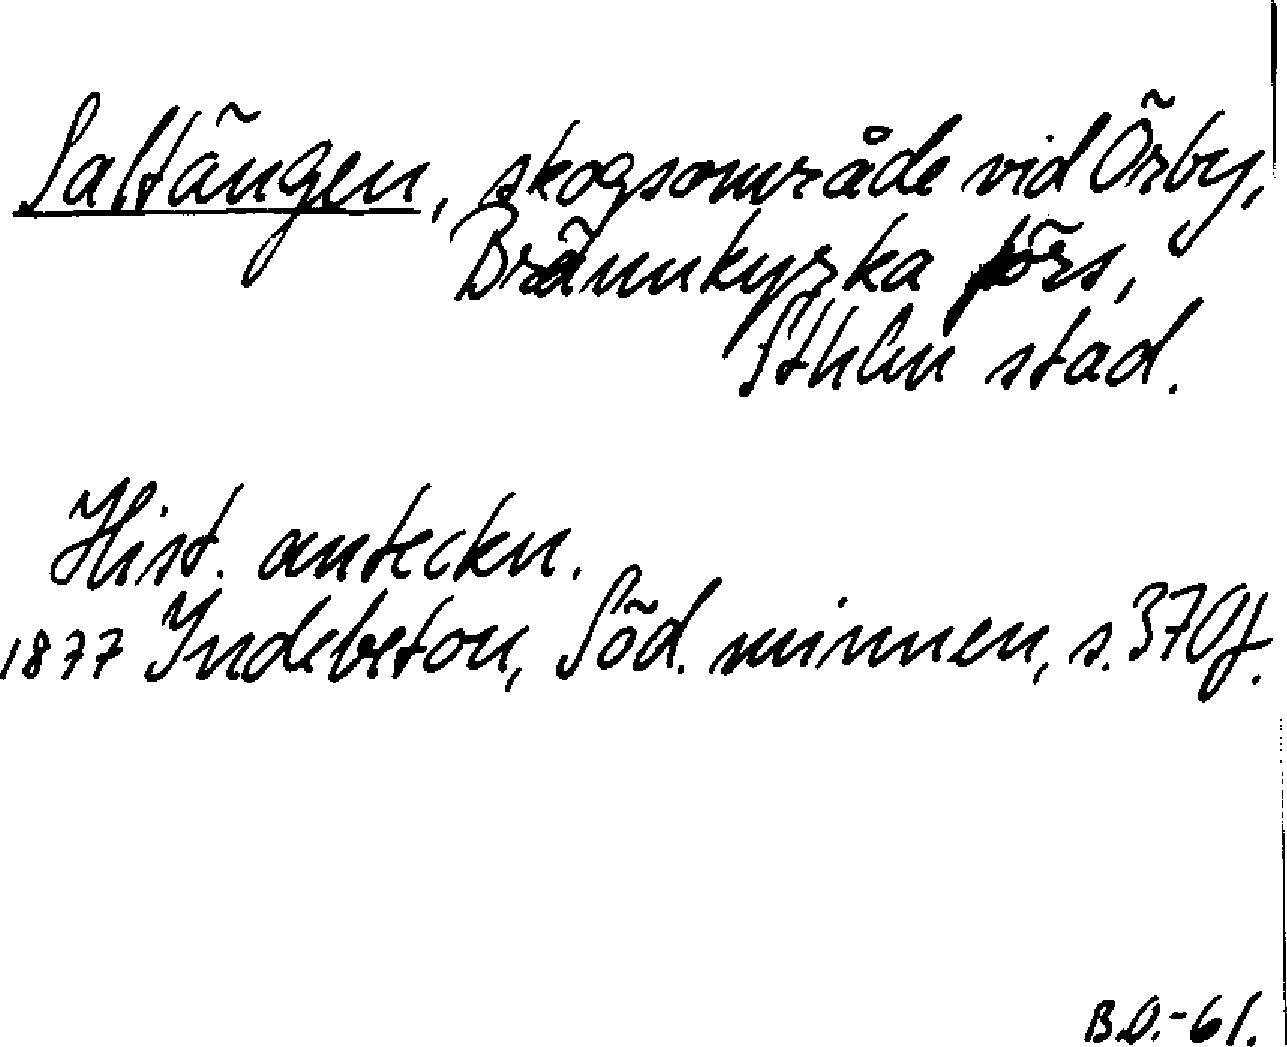 Saltängen, skogsområde vid Örby,
Brännkyrka förs,
Sthlm stad.
Hist. anteckn.
1877 Indebetou, Söd. minnen, s. 370f.
B.O.-61.